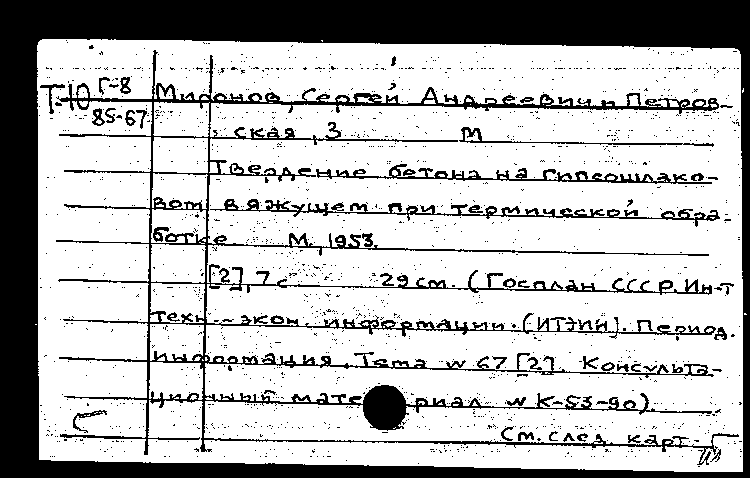 Т-10 Г-8 Миронов, Сергей Андреевич и Петров-
85-67
ская, З М
Твердение бетона на гипсошлако-
вом вяжущем при термической обра-
ботке М., 1953.
[2], 7 с 29 см. (Госплан СССР. Ин-т
техн.-экон. информации. (ИТЭИН). Период.
информация. Тема № 67 [2]. Консульта-
ционный материал № К-53-90).
См. след. карт.